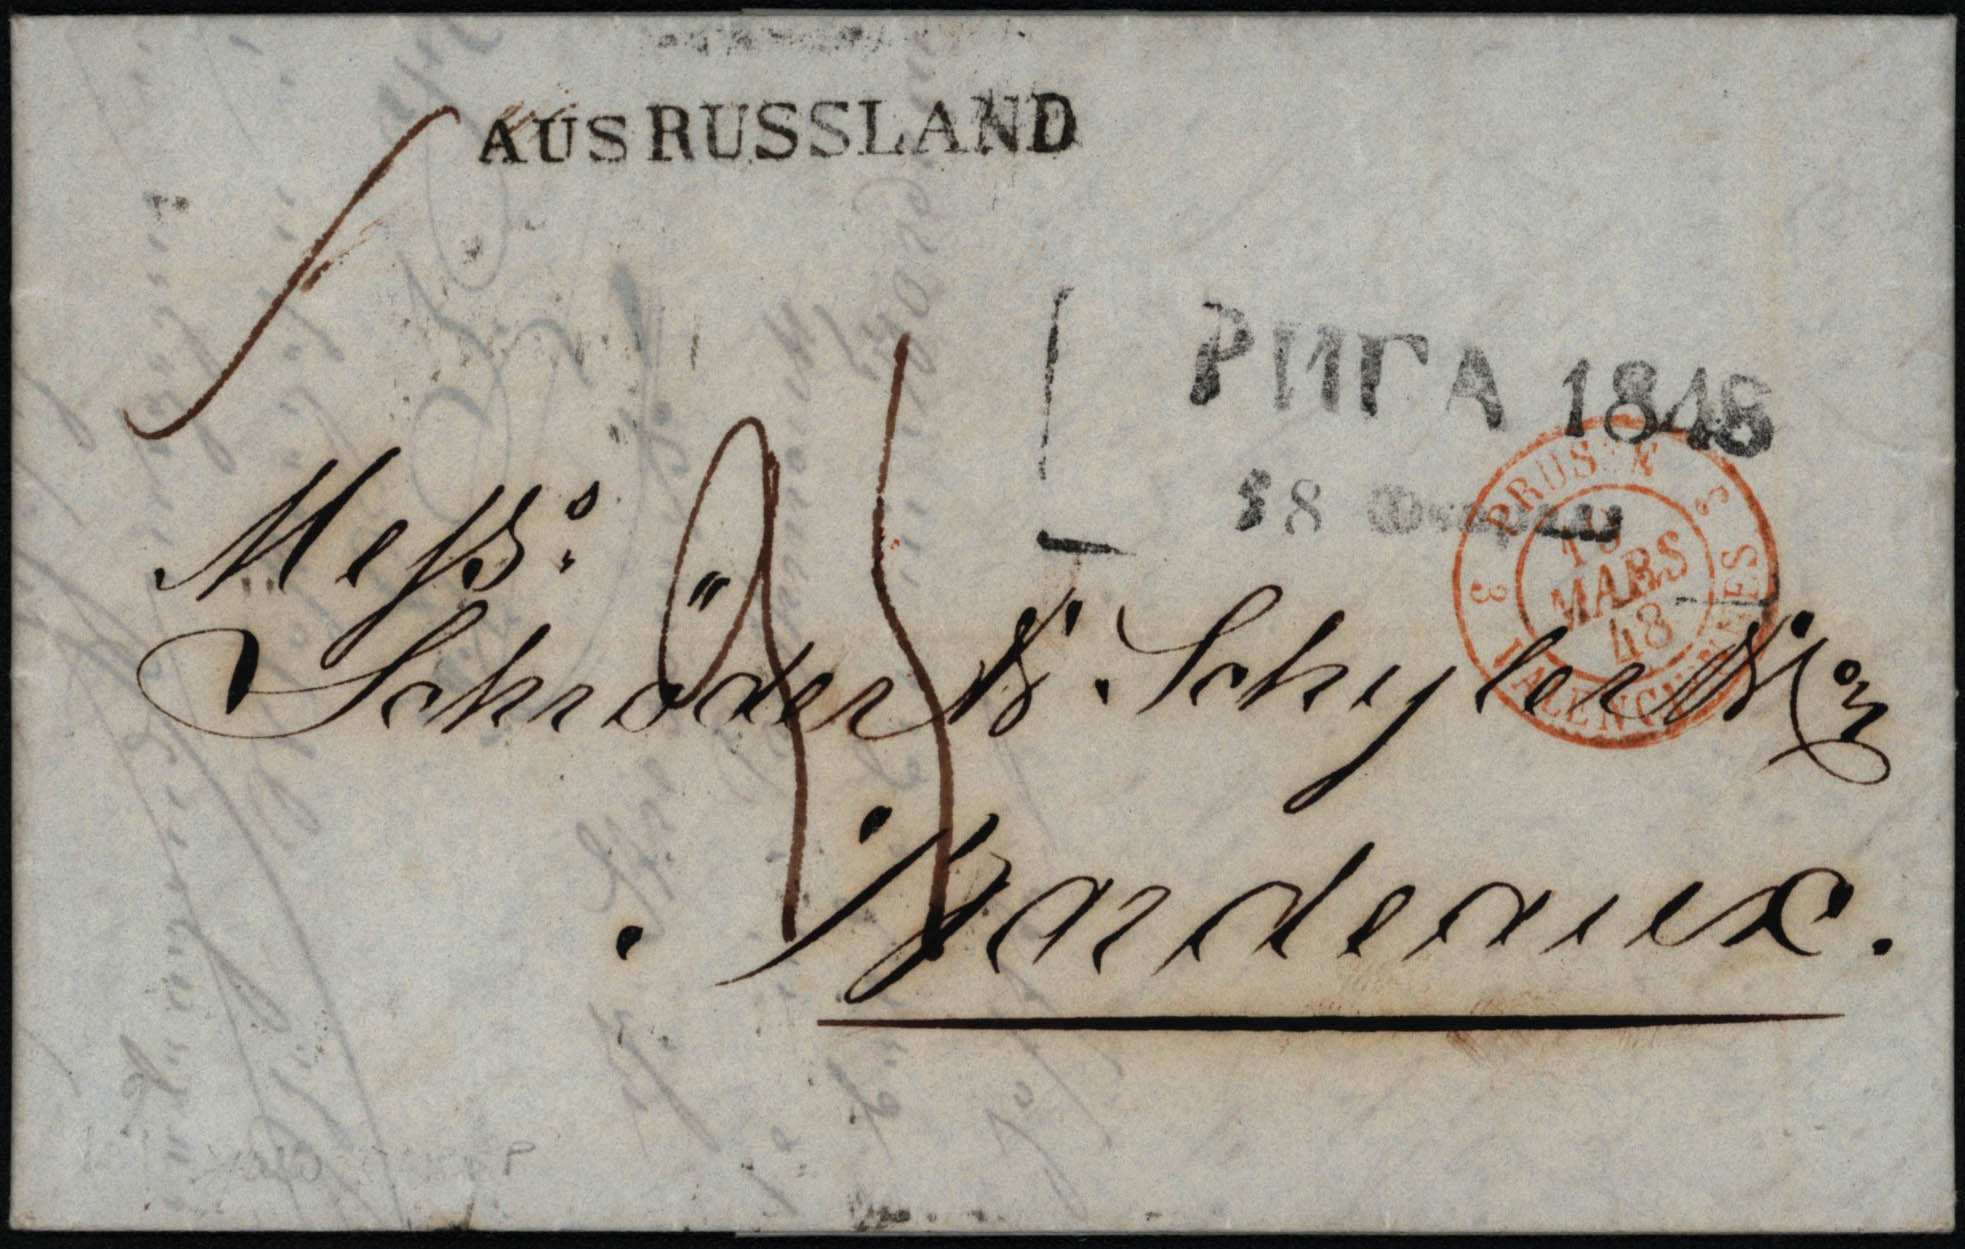 AUS RUSSLAND
РИГА 1848
18
PRUSSE 3
VALENCIENNES 3
MARS
48
Messs.
Schröder & Schyler & Co
Bordeaux.